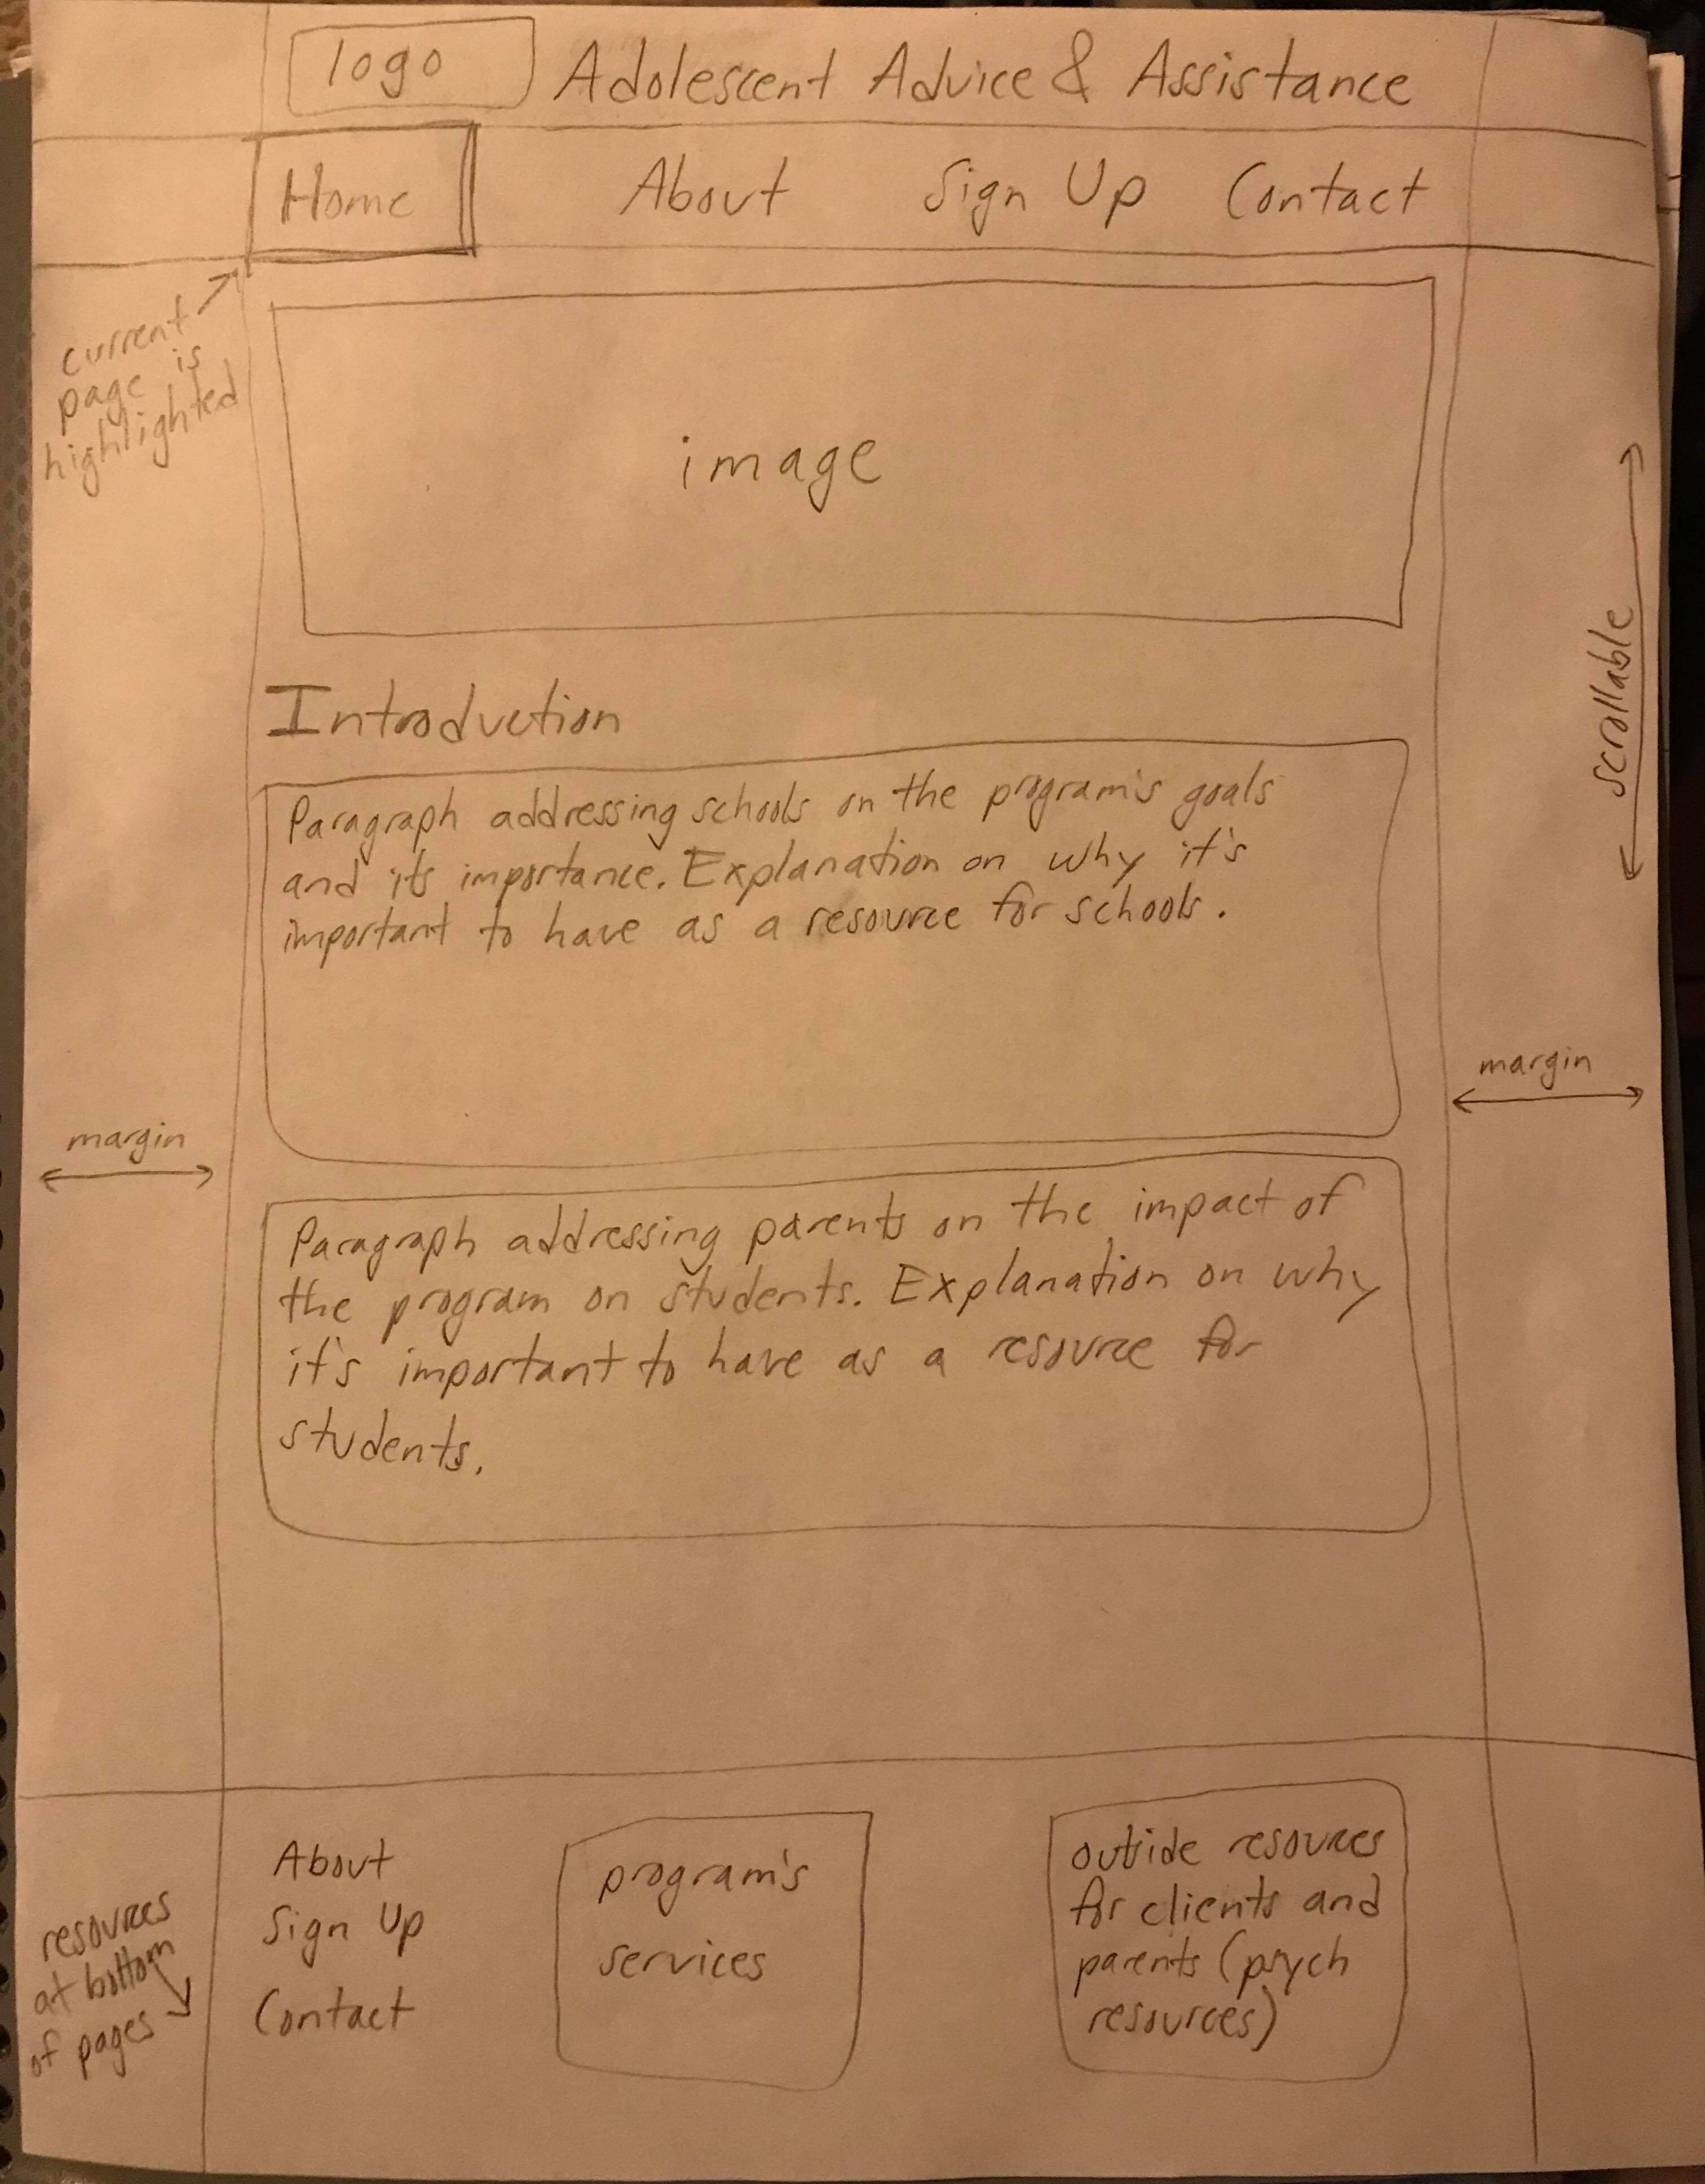 logo
Adolescent Advice & Assistance
Home
About
Sign Up
Contact
current
page is
highlighted
image
scrollable
Introduction
Paragraph addressing schools on the program's goals
and its importance. Explanation on why it's
important to have as a resource for schools.
margin
margin
Paragraph addressing parents on the impact of
the program on students. Explanation on why
it's important to have as a resource for
students.
resources
at bottom
of pages
About
Sign Up
Contact
program's
services
outside resources
for clients and
parents (psych
resources)